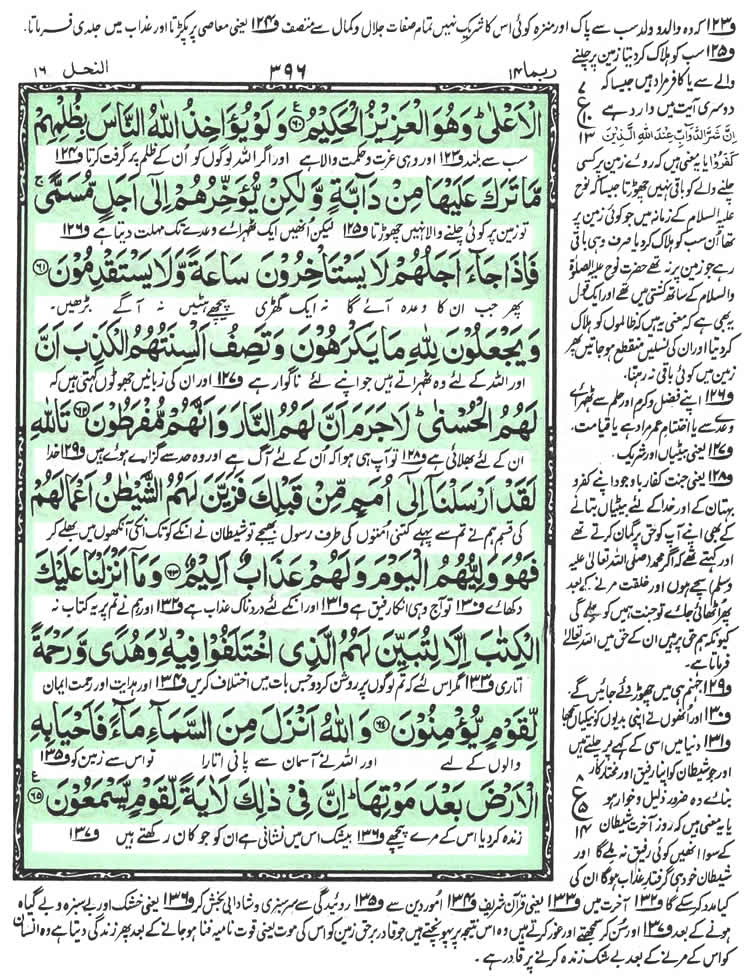 ف۱۲۳ کہ وہ والد و ولد سب سے پاک اور منزہ کوئی اس کا شریک نہیں تمام صفات جلال و کمال سے متصف ف۱۲۴ یعنی معاصی پر پکڑتا اور عذاب میں جلدی فرماتا۔
ربما ۱۴
۳۹۶
النحل ۱۶
الْاَعْلٰىؕ وَ هُوَ الْعَزِیْزُ الْحَكِیْمُ۠(۶۰) وَ لَوْ یُؤَاخِذُ اللّٰهُ النَّاسَ بِظُلْمِهِمْ
سب سے بلند ف۱۲۳ اور وہی عزت و حکمت والا ہے اور اگر اللہ لوگوں کو ان کے ظلم پر گرفت کرتا ف۱۲۴
مَّا تَرَكَ عَلَیْهَا مِنْ دَآبَّةٍ وَّ لٰكِنْ یُّؤَخِّرُهُمْ اِلٰۤى اَجَلٍ مُّسَمًّىۚ
تو زمین پر کوئی چلنے والا نہیں چھوڑتا ف۱۲۵ لیکن انھیں ایک ٹھہرائے وعدے تک مہلت دیتا ہے ف۱۲۶
فَاِذَا جَآءَ اَجَلُهُمْ لَا یَسْتَاْخِرُوْنَ سَاعَةً وَّ لَا یَسْتَقْدِمُوْنَ(۶۱)
پھر جب ان کا وعدہ آئے گا نہ ایک گھڑی پیچھے ہٹیں نہ آگے بڑھیں۔
وَ یَجْعَلُوْنَ لِلّٰهِ مَا یَكْرَهُوْنَ وَ تَصِفُ اَلْسِنَتُهُمُ الْكَذِبَ اَنَّ
اور اللہ کے لئے وہ ٹھہراتے ہیں جو اپنے لئے ناگوار ہے ف۱۲۷ اور ان کی زبانیں جھوٹوں کہتی ہیں کہ
لَهُمُ الْحُسْنٰىؕ لَا جَرَمَ اَنَّ لَهُمُ النَّارَ وَ اَنَّهُمْ مُّفْرَطُوْنَ(۶۲) تَاللّٰهِ
ان کے لئے بھلائی ہے ف۱۲۸ تو آپ ہی ہوا کہ ان کے لئے آگ ہے اور وہ حد سے گزارے ہوئے ہیں ف۱۲۹ خدا
لَقَدْ اَرْسَلْنَاۤ اِلٰۤى اُمَمٍ مِّنْ قَبْلِكَ فَزَیَّنَ لَهُمُ الشَّیْطٰنُ اَعْمَالَهُمْ
کی قسم ہم نے تم سے پہلے کتنی امتوں کی طرف رسول بھیجے تو شیطان نے انکے کوتک انکی آنکھوں میں بھلے کر
فَهُوَ وَلِیُّهُمُ الْیَوْمَ وَ لَهُمْ عَذَابٌ اَلِیْمٌ(۶۳) وَ مَاۤ اَنْزَلْنَا عَلَیْكَ
دکھائے ف۱۳۰ تو آج وہی انکا رفیق ہے ف۱۳۱ اور انکے لئے دردناک عذاب ہے ف۱۳۲ اور ہم نے تم پر یہ کتاب نہ
الْكِتٰبَ اِلَّا لِتُبَیِّنَ لَهُمُ الَّذِی اخْتَلَفُوْا فِیْهِۙ وَ هُدًى وَّ رَحْمَةً
اتاری ف۱۳۳ مگر اس لئے کہ تم لوگوں پر روشن کردو جس بات میں اختلاف کریں ف۱۳۴ اور ہدایت اور رحمت ایمان
لِّقَوْمٍ یُّؤْمِنُوْنَ(۶۴) وَ اللّٰهُ اَنْزَلَ مِنَ السَّمَآءِ مَآءً فَاَحْیَا بِهِ
والوں کے لیے اور اللہ نے آسمان سے پانی اتارا تو اس سے زمین کو ف۱۳۵
الْاَرْضَ بَعْدَ مَوْتِهَاؕ اِنَّ فِیْ ذٰلِكَ لَاٰیَةً لِّقَوْمٍ یَّسْمَعُوْنَ۠(۶۵)
زندہ کردیا اس کے مرے پیچھے ف۱۳۶ بیشک اس میں نشانی ہے ان کو جو کان رکھتے ہیں ف۱۳۷
ف۱۲۵ سب کو ہلاک کردیتا زمین پر چلنے
والے سے یا کافر مراد ہیں جیسا کہ
دوسری آیت میں وارد ہے
اِنَّ شَرَّ الدَّوَآبِّ عِنْدَ اللّٰهِ الَّذِیْنَ
كَفَرُوْا یا یہ معنی ہیں کہ روئے زمین پر کسی
چلنے والے کو باقی نہیں چھوڑتا جیسا کہ نوح
علیہ السلام کے زمانہ میں جو کوئی زمین پر
تھا ان سب کو ہلاک کردیا صرف وہی باقی
رہے جو زمین پر نہ تھے حضرت نوح علیہ الصلوٰۃ
والسلام کے ساتھ کشتی میں تھے اور ایک قول
یہ بھی ہے کہ معنی یہ ہیں کہ ظالموں کو ہلاک
کردیتا اور ان کی نسلیں منقطع ہوجاتیں پھر
زمین میں کوئی باقی نہ رہتا۔
ف۱۲۶ اپنے فضل و کرم اور حلم سے ٹھہرائے
وعدے سے یا اختتام عمر مراد ہے یا قیامت۔
ف۱۲۷ یعنی بیٹیاں اور شریک۔
ف۱۲۸ یعنی جنت کفار باوجود اپنے کفر و
بہتان کے اور خدا کے لئے بیٹیاں بتانے
کے بھی اپنے آپ کو حق پر گمان کرتے تھے
اور کہتے تھے کہ اگر محمد (صلی اللہ تعالیٰ علیہ
وسلم) سچے ہوں اور خلقت مرنے کے بعد
پھر اٹھائی جائے تو جنت ہمیں کو ملے گی
کیونکہ ہم حق پر ہیں ان کے حق میں اللہ تعالیٰ
فرماتا ہے۔
ف۱۲۹ جہنم ہی میں چھوڑ دئے جائیں گے۔
ف۱۳۰ اور انھوں نے اپنی بدیوں کو نیکیاں سمجھا
ف۱۳۱ دنیا میں اسی کے کہے پر چلتے ہیں
اور جو شیطان کو اپنا رفیق اور مختار کار
بنائے وہ ضرور ذلیل و خوار ہو
یا یہ معنی ہیں کہ روز آخرت شیطان
کے سوا انھیں کوئی رفیق نہ ملے گا اور
شیطان خود ہی گرفتار عذاب ہوگا ان کی
کیا مدد کرسکے گا ف۱۳۲ آخرت میں ف۱۳۳ یعنی قرآن شریف ف۱۳۴ امور دین سے ف۱۳۵ روئیدگی سے سرسبزی و شادابی بخش کر ف۱۳۶ یعنی خشک اور بے سبزہ و بے گیاہ
ہونے کے بعد ف۱۳۷ اور سن کر سمجھتے اور غور کرتے ہیں وہ اس نتیجہ پر پہونچتے ہیں جو قادر برحق زمین کو اس کی موت یعنی قوت نامیہ فنا ہوجانے کے بعد پھر زندگی دیتا ہے وہ انسان
کو اس کے مرنے کے بعد بے شک زندہ کرنے پر قادر ہے۔
۷
ع
۱۰
۱۳
۸
ع
۵
۱۴